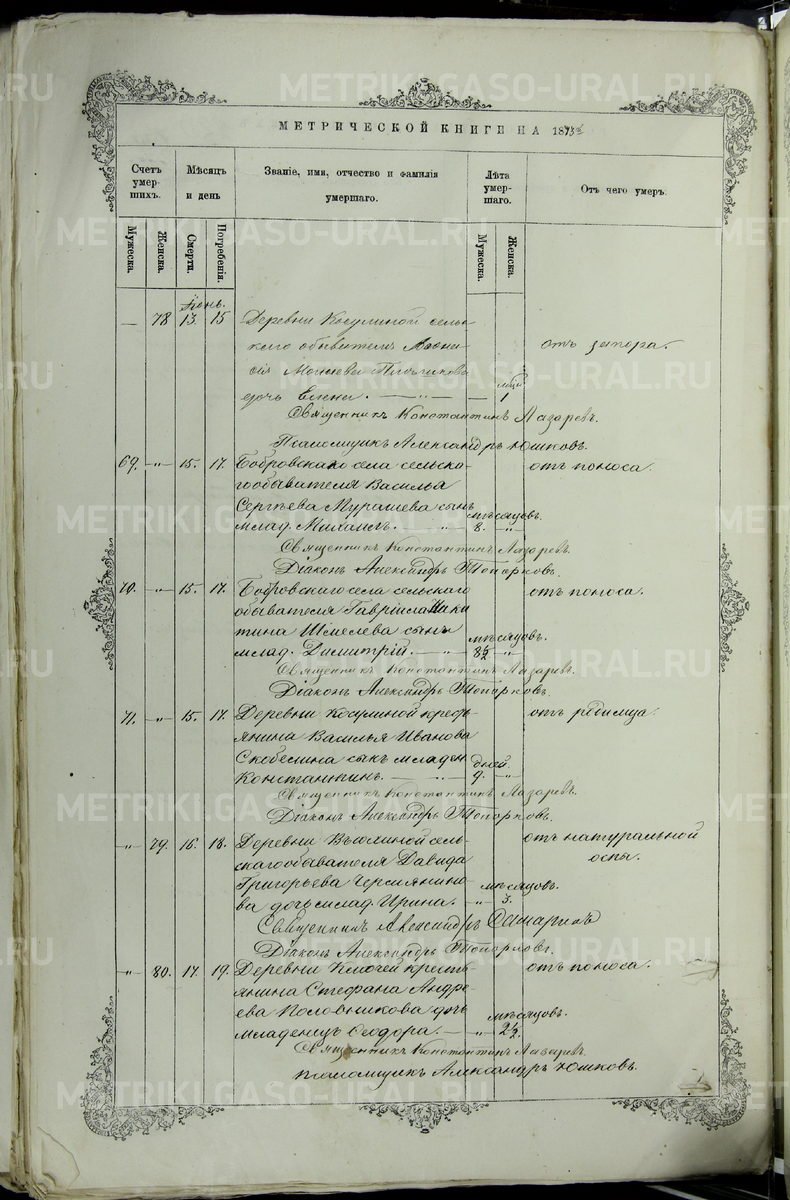 METRIKI.GASO-URAL.RU
МЕТРИЧЕСКОЙ КНИГИ НА 1873й
Счетъ умер- шихъ.
Мѣсяцъ и день
Званіе, имя, отчество и фамилія умершаго.
Лѣта умер- шаго.
Отъ чего умеръ.
Мужеска.
Женска.
Смерти.
Погребенія.
Мужеска.
Женска.
Іюнь.
— 78 13 15 Деревни Косулиной сель-
скаго обывателя отъ запора.
дочь Елена. — 1
Священникъ Константинъ Лазаревъ.
Псаломщикъ Александръ Юшковъ.
69. —"— 15. 17. Бобровскаго села сельска- отъ поноса.
гообывателя Василья
Сергѣева Мурашева сынъ мѣсяцовъ.
млад. Михаилъ. — " — 8. —"—
Священникъ Константинъ Лазаревъ.
Діаконъ Александръ Топорковъ.
70. —"— 15. 17. Бобровскаго села сельскаго отъ поноса.
обывателя Гавріила Ники
тина Шмелева сынъ мѣсяцовъ.
млад. Димитрій. — " — 8½ —"—
Священникъ Константинъ Лазаревъ.
Діаконъ Александръ Топорковъ.
71. —"— 15. 17. Деревни Косулиной кресть- отъ родимца.
янина Василья Иванова
Скобелина сынъ младен дней
Константинъ. — " — 9. —"—
Священникъ Константинъ Лазаревъ.
Діаконъ Александръ Топорковъ.
—"— 79. 16. 18. Деревни сель- отъ натуральной
скагообывателя Давида оспы.
Григорьева Чермянино- мѣсяцовъ.
ва дочь млад. Ирина. — —"— 3.
Священникъ Александръ
Діаконъ Александръ Топорковъ.
—"— 80. 17. 19. Деревни Ключей кресть- отъ поноса.
янина Стефана Андре-
ева Половникова дочь мѣсяцовъ.
младенецъ Ѳеодора. — —"— 2½.
Священникъ Константинъ Лазаревъ.
Псаломщикъ Александръ Юшковъ.